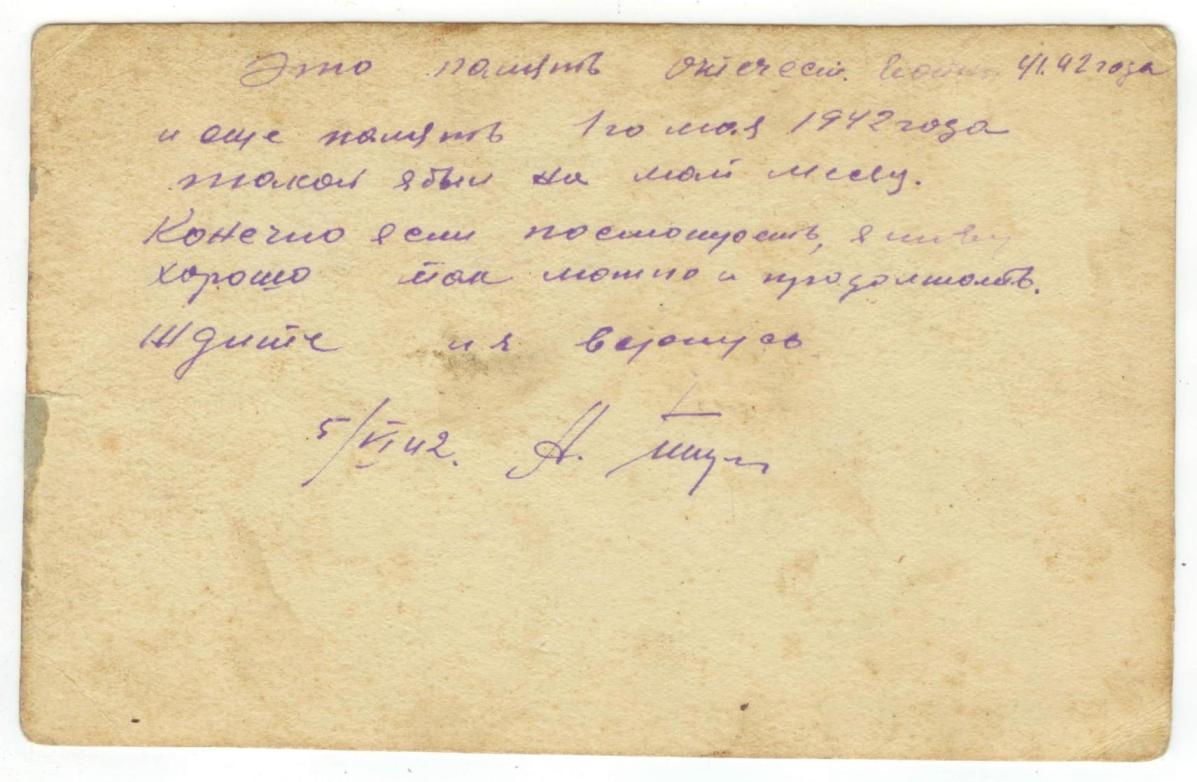 Это память отечест. войны 41.42 года
и еще память 1го мая 1942 года
такой я был на май месяц.
Конечно если посмотреть, я живу
хорошо так можно и продолжать.
Ждите и я вернусь
5/VI 42. А.